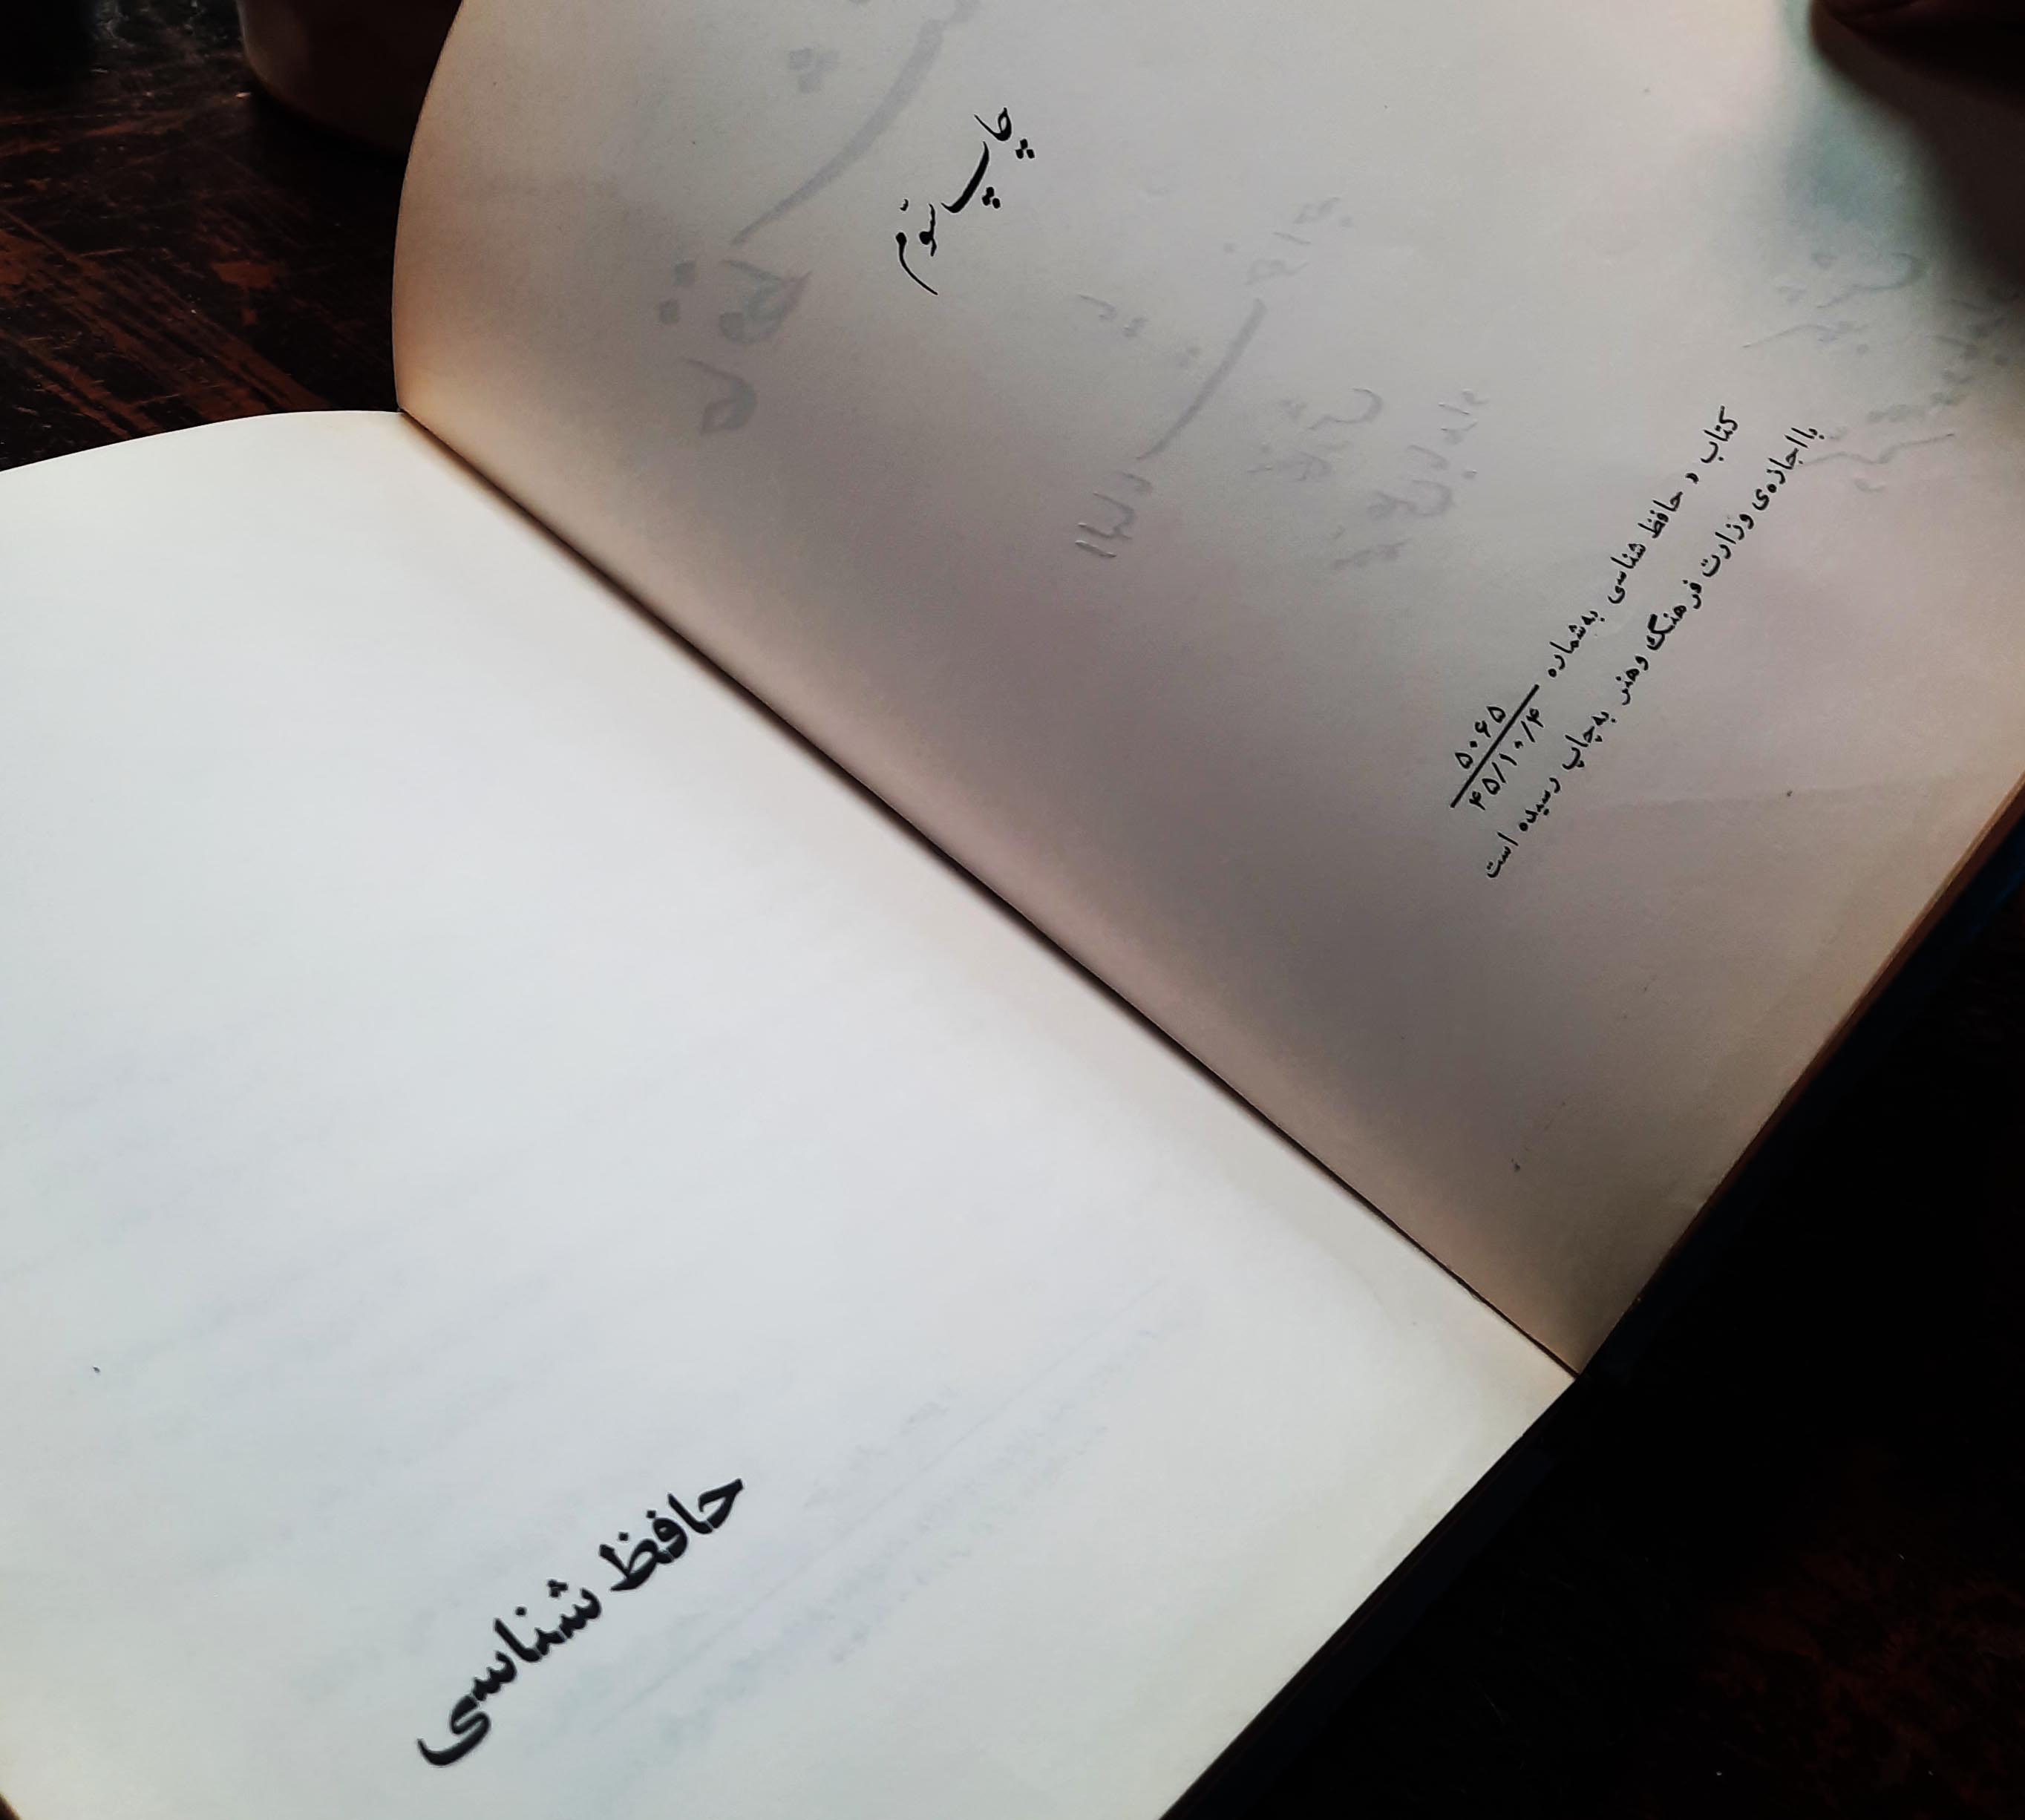 چاپ سوّم
کتاب « حافظ شناسی به‌شماره ۵۰۶۵
۴۵/۱۰/۴
با اجازه‌ی وزارت فرهنگ و هنر به‌چاپ رسیده است
حافظ شناسی